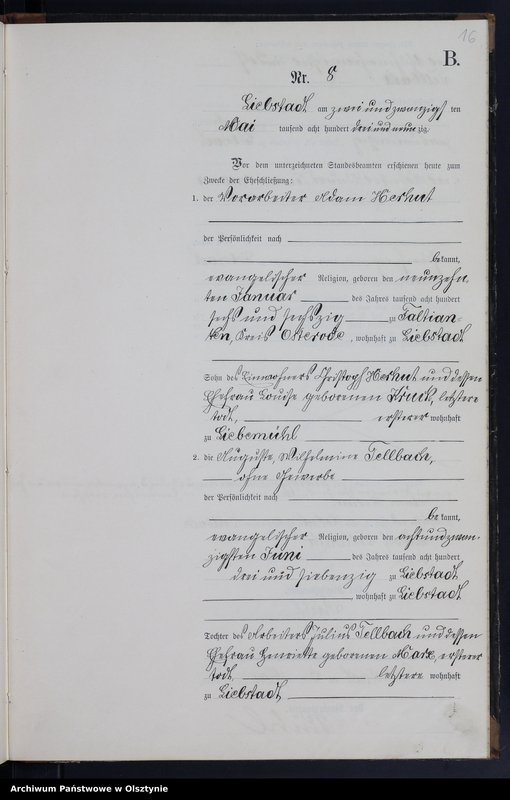 16
B.
Nr. 8
Liebstadt am zwei und zwanzigsten
Mai tausend acht hundert drei und neunzig.
Vor dem unterzeichneten Standesbeamten erschienen heute zum
Zwecke der Eheschließung:
1. der Vorarbeiter Adam Herhut
der Persönlichkeit nach
bekannt,
evangelischer Religion, geboren den neunzehn
ten Januar des Jahres tausend acht hundert
sechs und sechszig zu Taftian-
ken, Kreis Osterode, wohnhaft zu Liebstadt
Sohn des Einwohners Christoph Herhut und dessen
Ehefrau Louise geborenen Struck, letztere
todt, ersterer wohnhaft
zu Liebemühl
2. die Auguste, Wilhelmine Tellbach,
ohne Gewerbe
der Persönlichkeit nach
bekannt,
evangelischer Religion, geboren den acht und zwan-
zigsten Juni des Jahres tausend acht hundert
drei und siebenzig zu Liebstadt
, wohnhaft zu Liebstadt
Tochter des Arbeiters Julius Tellbach und dessen
Ehefrau Henriette geborenen Marx, ersterer
todt, letztere wohnhaft
zu Liebstadt
Archiwum Państwowe w Olsztynie